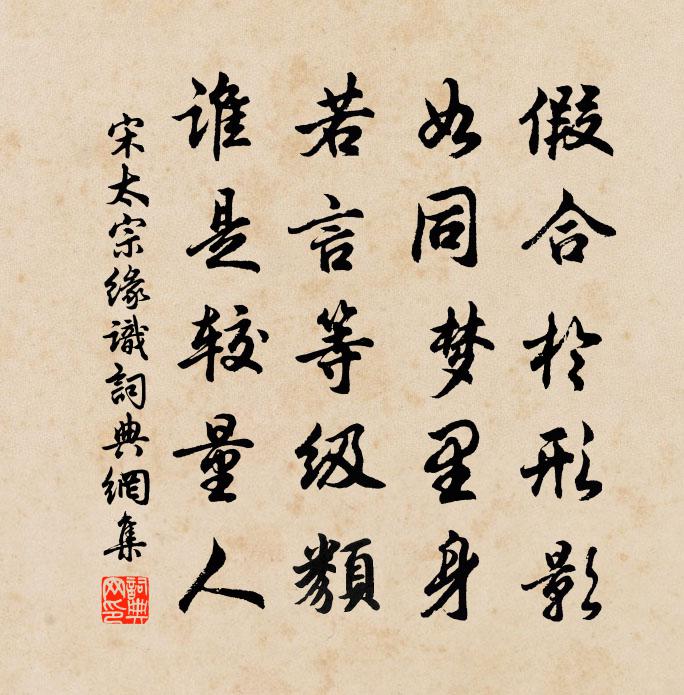 假合於形影
如同梦里身
若言等级类
谁是较量人
宋太宗缘識詞典網集
詞典网印